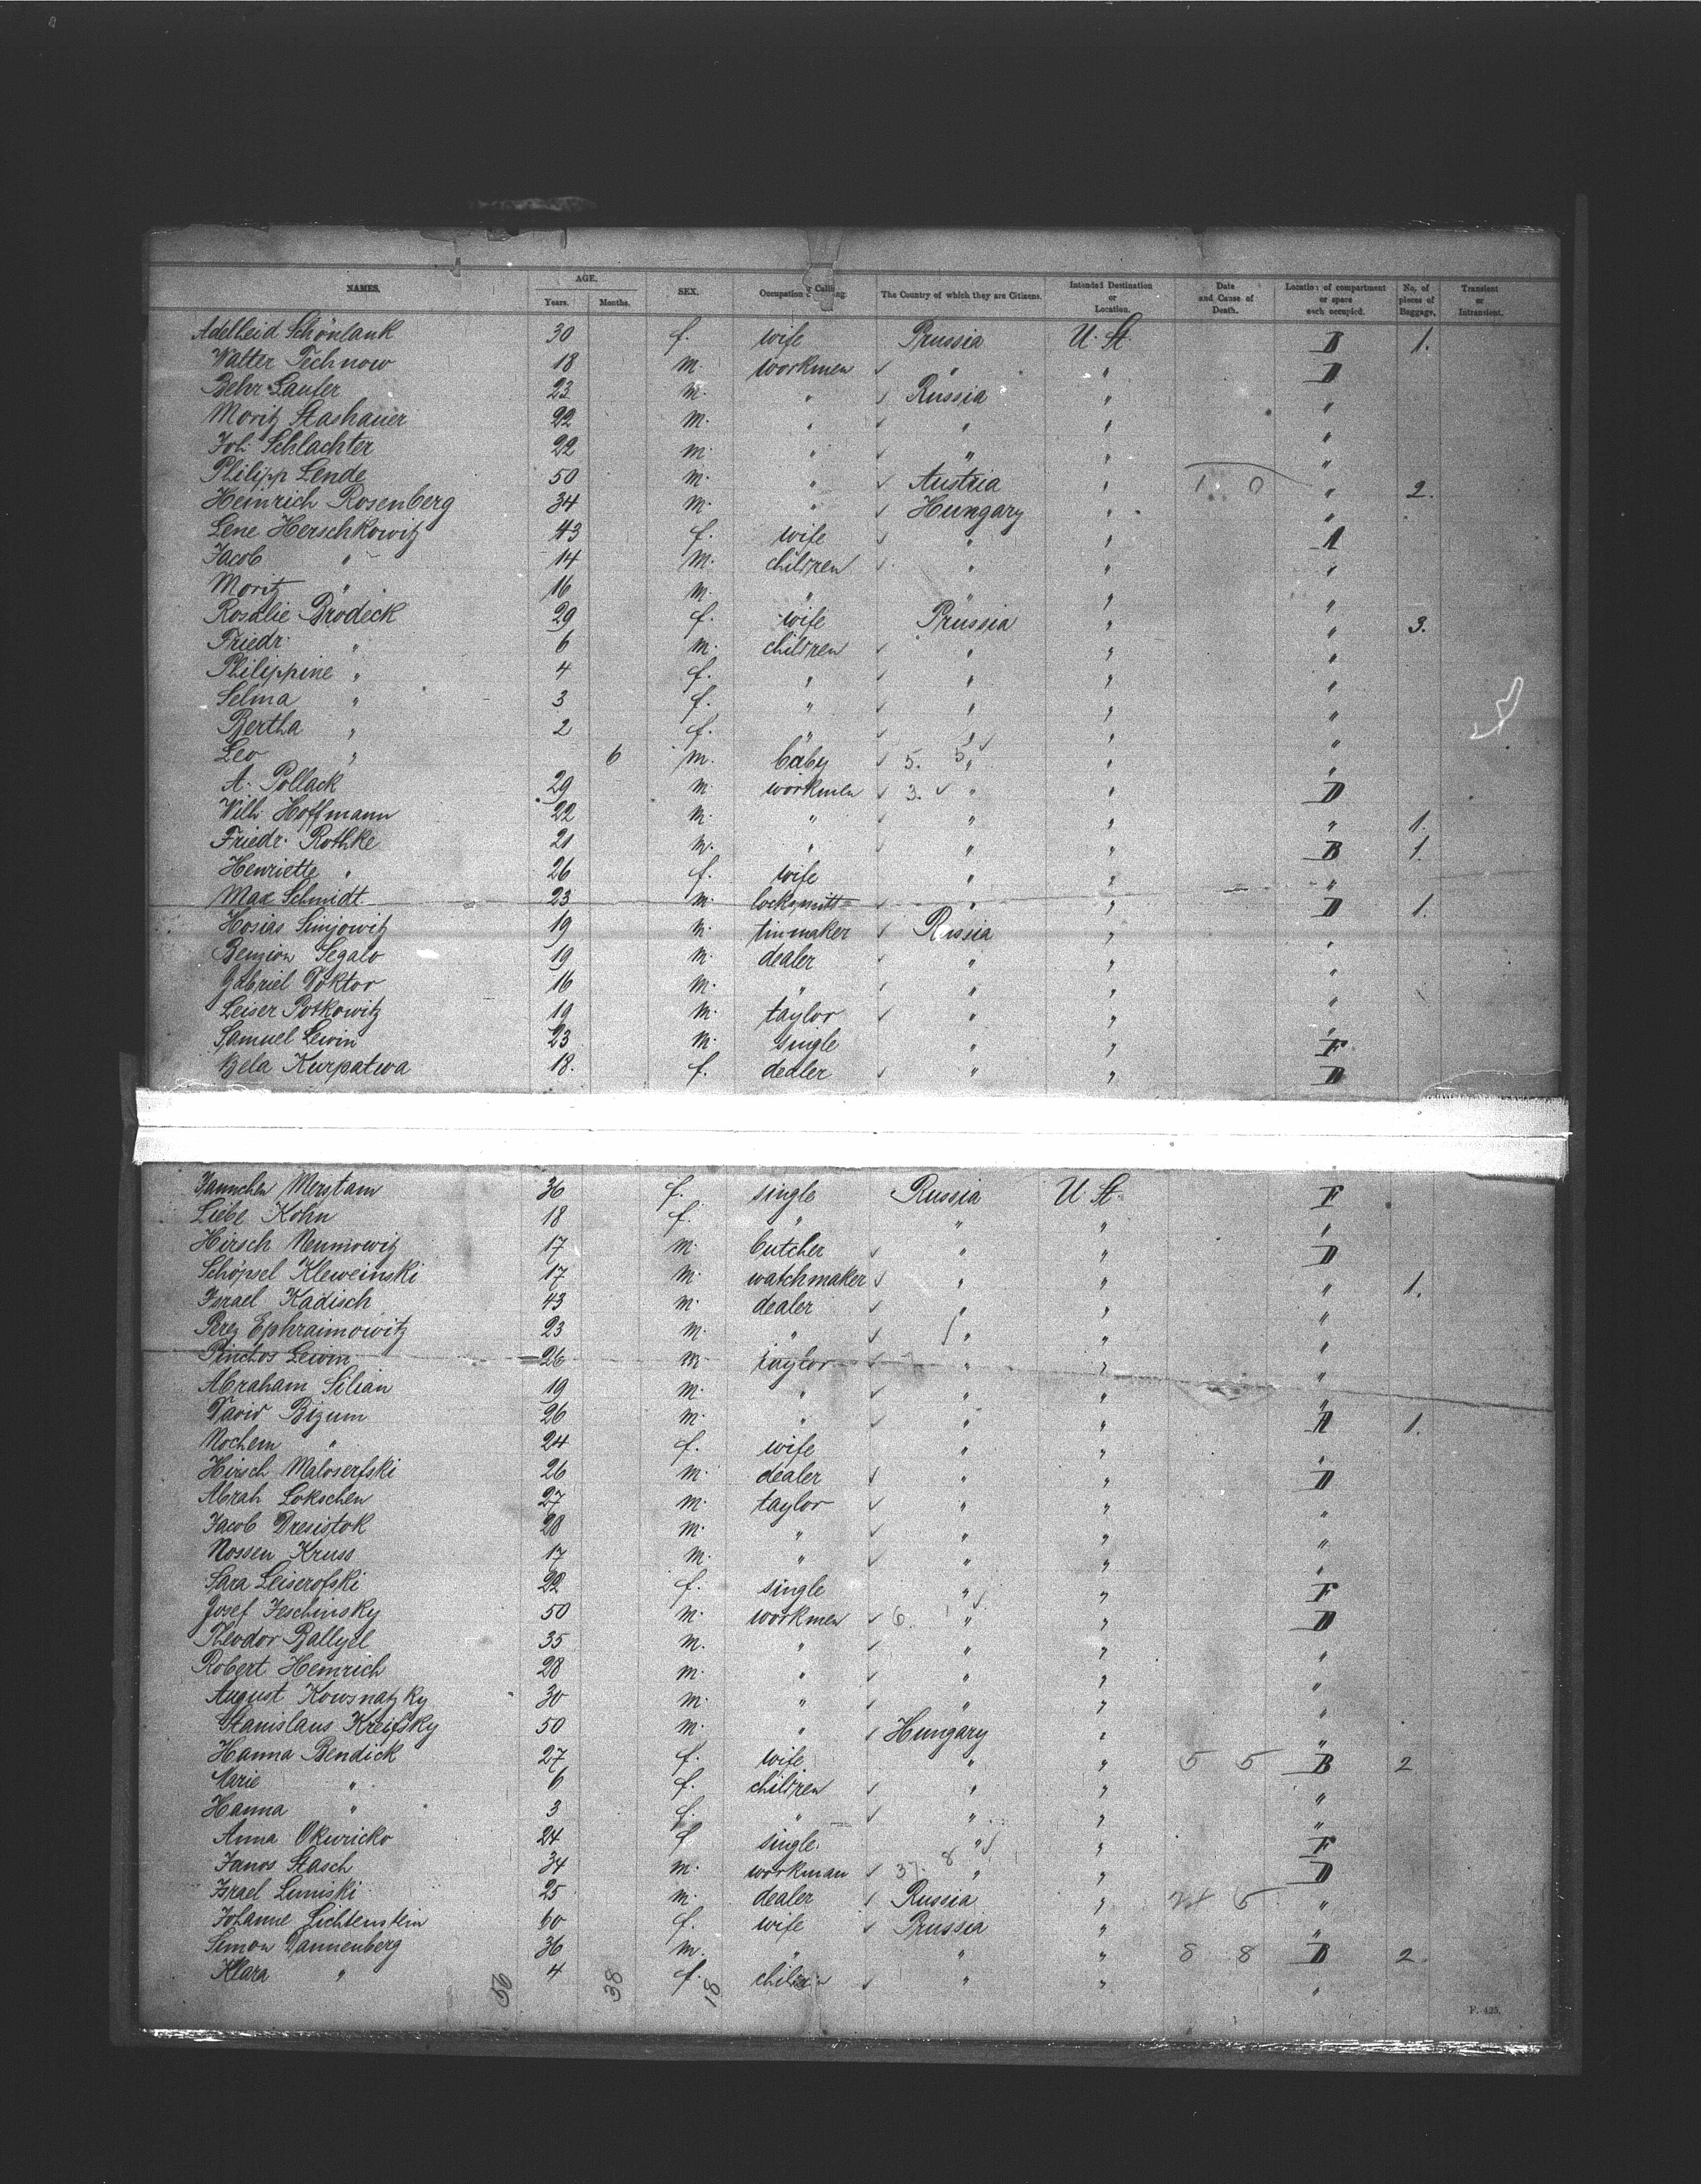 NAMES. AGE. Years. Months. SEX. Occupation or Calling. The Country of which they are Citizens. Intended Destination or Location. Date and Cause of Death. Location of compartment or space each occupied. No. of pieces of Baggage. Transient or Intransient.
Adelheid Schönlank 30 f. wife Prussia U. St. B 1.
Walter Technow 18 m. workmen " " D
Behr Laufer 23 m. " Russia " "
Moritz Stashauer 22 m. " " " "
Joh. Schlachter 22 m. " " " "
Philipp Lende 50 m. " Austria " 1 0 " 2.
Heinrich Rosenberg 34 m. " Hungary " "
Lene Herschkowitz 43 f. wife " " A
Jacob " 14 m. children " " "
Moritz " 16 m. " " " "
Rosalie Brodeck 29 f. wife Prussia " " 3.
Friedr. " 6 m. children " " "
Philippine " 4 f. " " " "
Selma " 3 f. " " " "
Bertha " 2 f. " " " "
Leo " 6 m. baby 5. 5 " " "
A. Pollack 29 m. workmen 3. " " D
Wilh. Hoffmann 22 m. " " " " 1.
Friedr. Rothke 21 m. " " " B 1.
Henriette " 26 f. wife " " "
Max Schmidt 23 m. locksmith " " D 1.
Hosias Simjowitz 19 m. tinmaker Russia " "
Benzion Segalo 19 m. dealer " " "
Gabriel Doktor 16 m. " " " "
Leiser Potkowitz 19 m. taylor " " "
Samuel Lewin 23 m. single " " F
Bela Kurpatwa 18. f. dealer " " D
Jannchen Merstam 36 f. single Russia U St. F
Liebe Kohn 18 f. " " " "
Hirsch Neumowitz 17 m. butcher " " D
Schöpsel Kleweinski 17 m. watchmaker " " " 1.
Israel Kadisch 43 m. dealer " " "
Perez Ephraimowitz 23 m. " " " "
Pinchos Lewin 26 m. taylor " " "
Abraham Silian 19 m. " " " "
David Bizum 26 m. " " " A 1.
Nochem " 24 f. wife " " "
Hirsch Maloserfski 26 m. dealer " " D
Abrah Lokschen 27 m. taylor " " "
Jacob Dresistok 28 m. " " " "
Nossen Kruss 17 m. " " " "
Sara Leiserofski 22 f. single " " F
Josef Jeschinsky 50 m. workmen 6. " " D
Theodor Ballyel 35 m. " " " "
Robert Heinrich 28 m. " " " "
August Kowsnatzky 30 m. " " " "
Stanislaus Kreifsky 50 m. " Hungary " "
Hanna Bendick 27 f. wife " " 5 5 B 2
Marie " 6 f. children " " "
Hanna " 3 f. " " " "
Anna Okwricko 24 f. single " " F
Janos Stasch 34 m. workman 37. 8 " " D
Israel Liniski 25 m. dealer Russia " 5 "
Johanne Lichtenstein 60 f. wife Prussia " "
Simon Dannenberg 36 m. " " " 8 8 B 2.
Klara " 4 f. children " " "
56 38 18
F. 425.